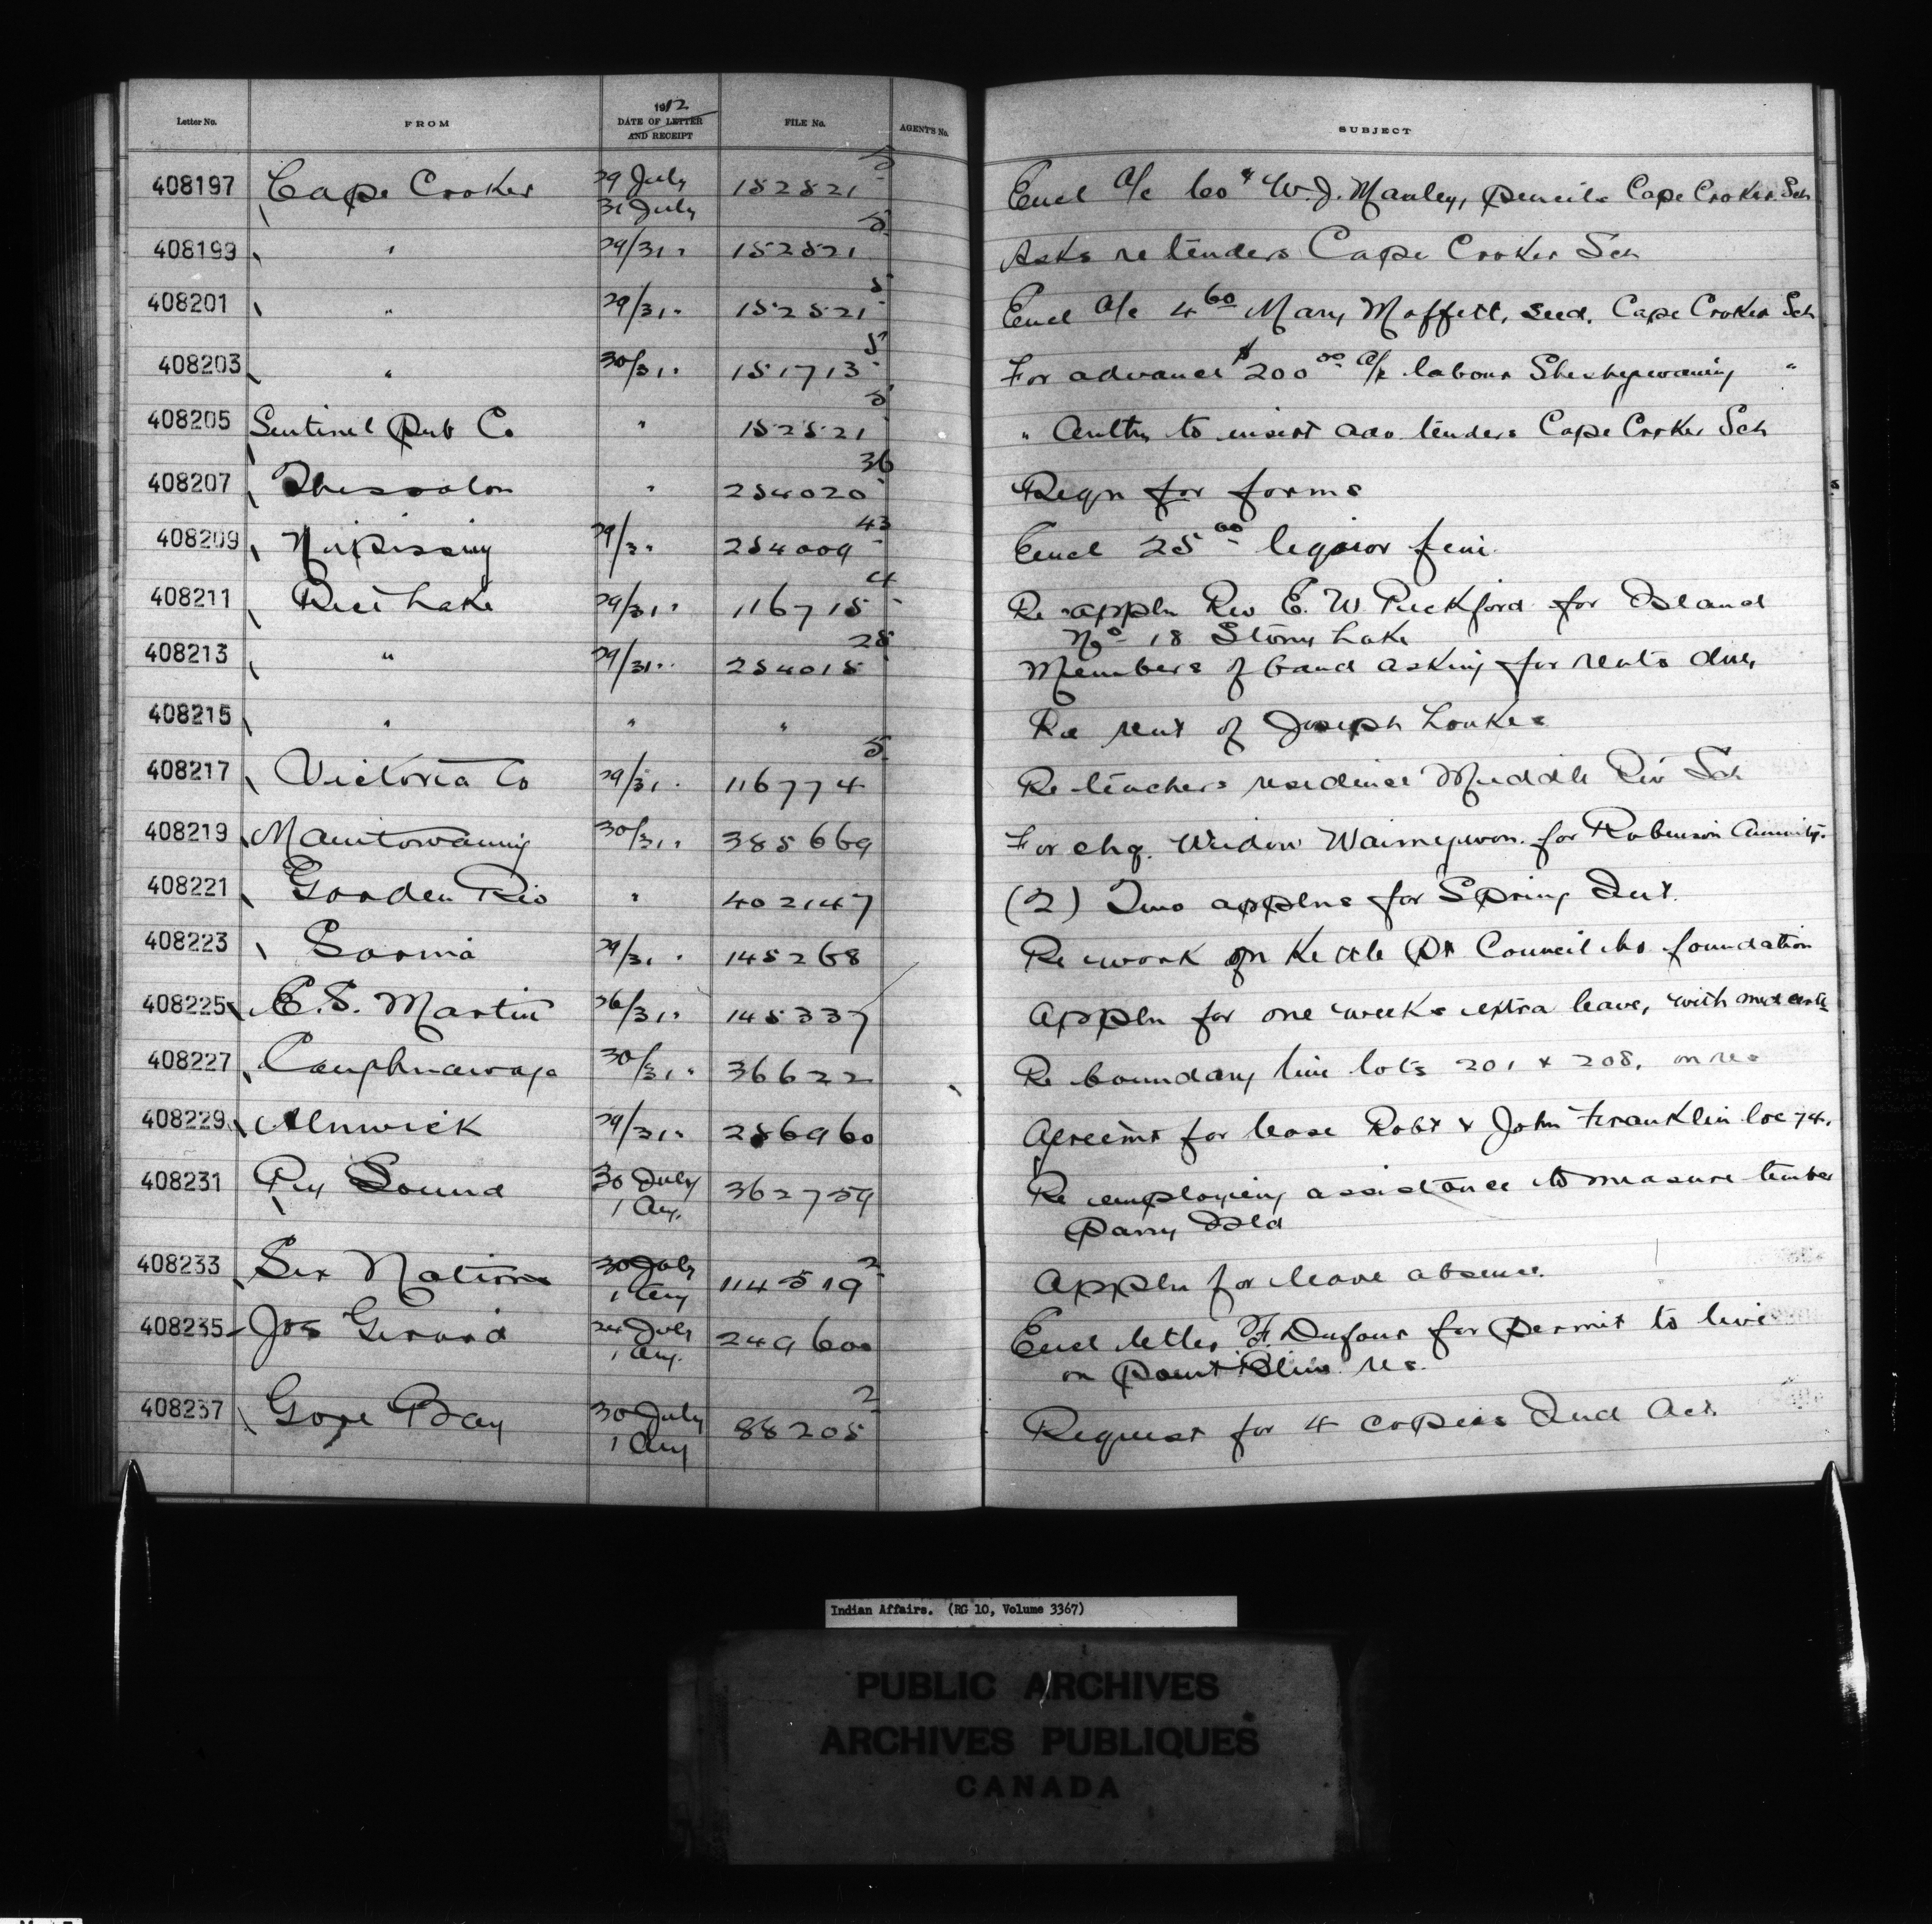 1912
Letter No. FROM DATE OF LETTER AND RECEIPT FILE No. AGENT'S No. SUBJECT
408197 Cape Croker 29 July 31 July 152521-5 Encl a/c 60¢ W. J. Manley, pencils Cape Croker Sch
408199 " 29/31 " 152521-5 Asks re tenders Cape Croker Sch
408201 " 29/31 " 152521-5 Encl a/c 4 60 Mary Moffett, seed, Cape Croker Sch
408203 " 30/31 " 151713-5 For advance $200 00 a/c labour Sheshegwaning "
408205 Sentinel Pub Co " 152521-5 " Authy to insert adv tenders Cape Croker Sch
408207 Thessalon " 254020-36 Reqn for forms
408209 Nipissing 29/31 " 254009-43 Encl 25 00 liquor fine
408211 Rice Lake 29/31 " 116715-4 Re appln Rev E. W. Pickford for Island
No 18 Stony Lake
408213 " 29/31 " 254015-28 Members of band asking for rents due
408215 " " " Re rent of Joseph Loukes
408217 Victoria Co 29/31 " 116774-5 Re teachers residence Muddle Riv Sch
408219 Manitowaning 30/31 " 385669 For chq. Widow for Robinson Annuity.
408221 Garden Riv " 402147 (2) Two applns for Spring Int.
408223 Sarnia 29/31 " 145268 Re work on Kettle Pt Council ho foundation
408225 E. S. Martin 26/31 " 145337 Appln for one weeks extra leave, with med certe
408227 Caughnawaga 30/31 " 36622 Re boundary line lots 201 & 208, on res
408229 Alnwick 29/31 " 256960 Agreemt for lease Robt & John Franklin loc 74.
408231 Pry Sound 30 July 1 Aug. 362759 Re employing assistance to measure timber
Parry Isld
408233 Six Nations 30 July 1 Aug 114519-2 Appln for leave absence.
408235 Jos Girard 24 July 1 Aug. 249600 Encl letter F. Dufour for permit to live
on Point Bleue res.
408237 Gore Bay 30 July 1 Aug 88205-2 Request for 4 copies Ind Act.
Indian Affairs. (RG 10, Volume 3367)
PUBLIC ARCHIVES
ARCHIVES PUBLIQUES
CANADA